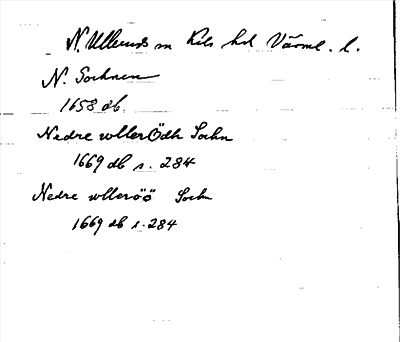 N. Ulleruds sn Kils hd Värml. l.
N. Sochnen
1658 db.
Nedre wllerödh Sochn
1669 db s. 284
Nedre wlleröö Sochn
1669 db s. 284